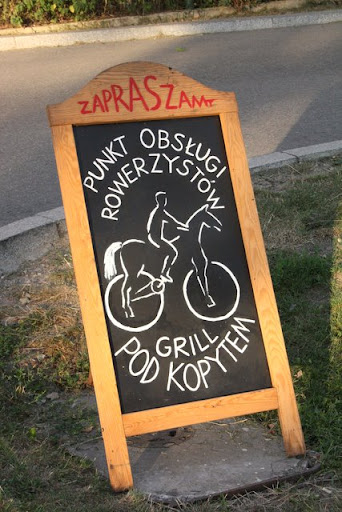 ZAPRASZAMY
PUNKT OBSŁUGI
ROWERZYSTÓW
GRILL
POD KOPYTEM